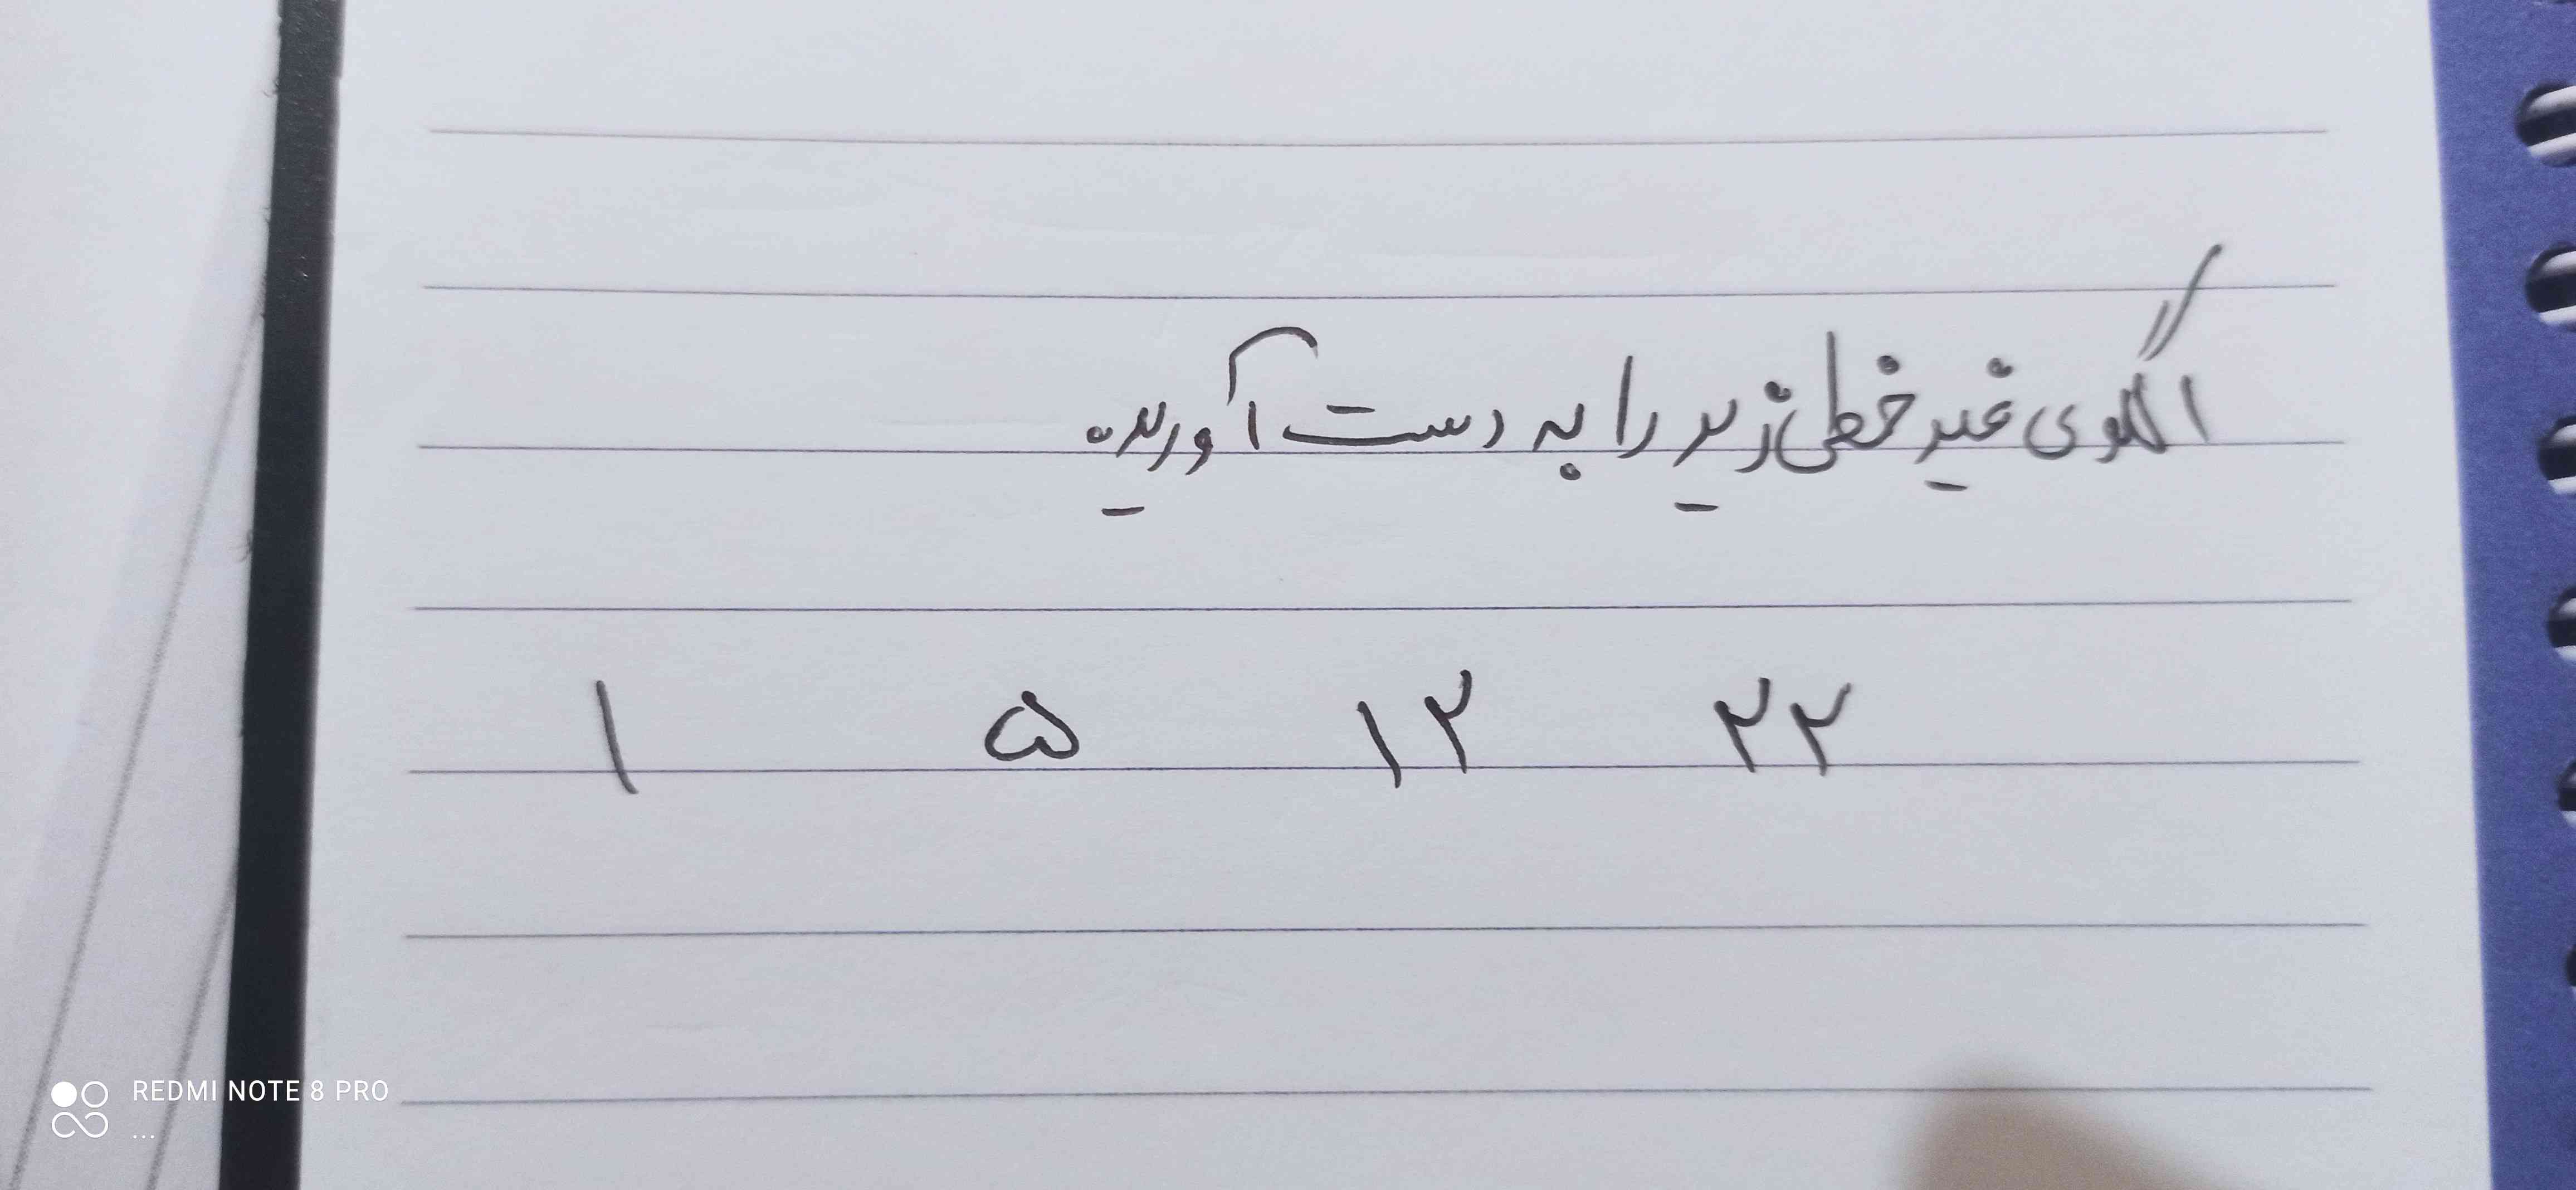 الگوی غیر خطی زیر را به دست آورید.
۱ ۵ ۱۲ ۲۲
REDMI NOTE 8 PRO
...